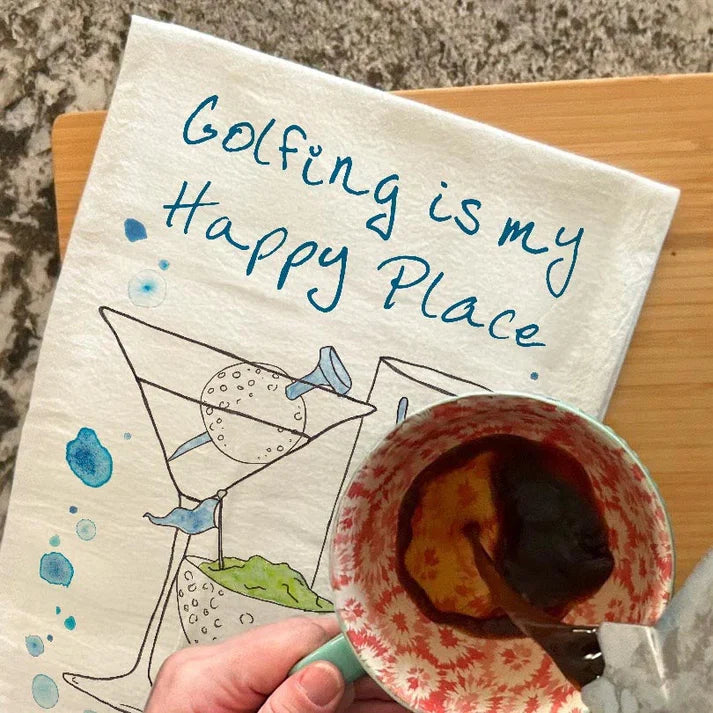 Golfing is my
Happy Place